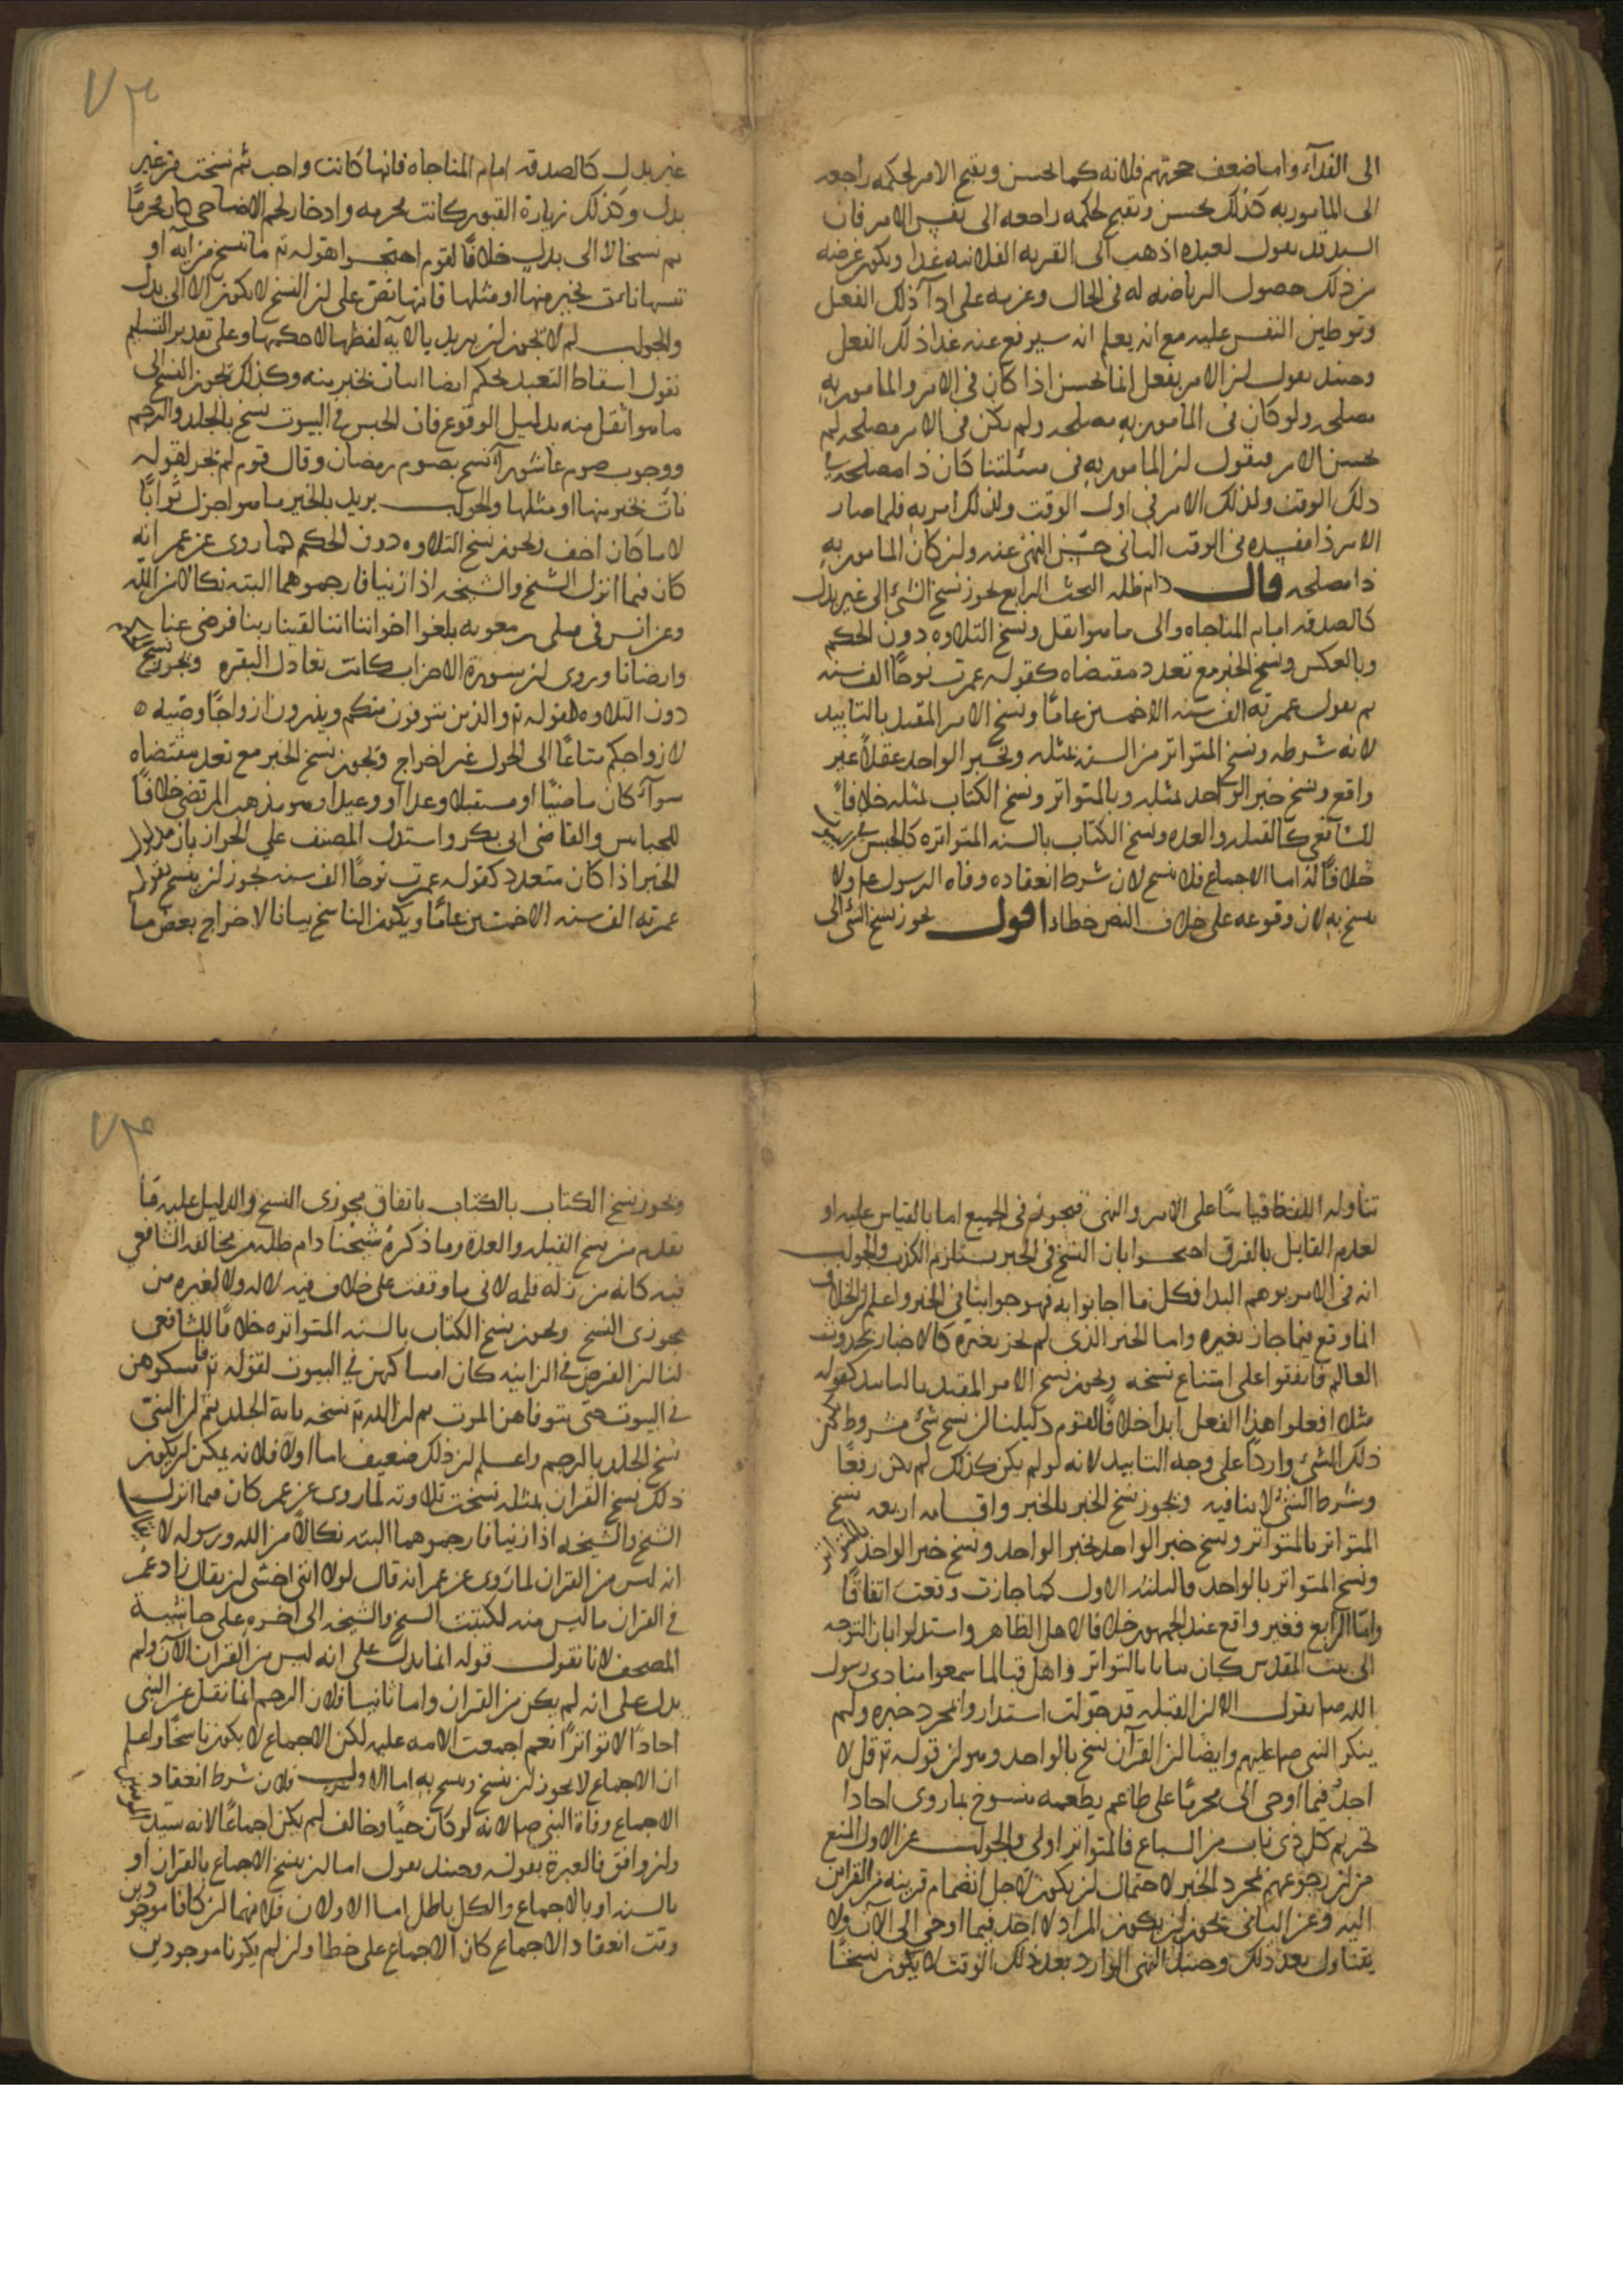 الى الفدآء واما ضعف حجتهم فلانه كما يحسن ويقبح الامر لحكمه راجعه
الى المامور به كذلك يحسن ويقبح لحكمه راجعه الى نفس الامر فان
السيد قد يقول لعبده اذهب الى القريه الفلانيه غدا ويكون غرضه
من ذلك حصول الرياضه له فى الحال وعزمه على ادآ ذلك الفعل
وتوطين النفس عليه مع انه يعلم انه سيرفع عنه غدا ذلك الفعل
وحينئذ نقول لان الامر بفعل انما يحسن اذا كان فى الامر والمامور به
مصلحه ولو كان فى المامور به مصلحه ولم يكن فى الامر مصلحه لم
يحسن الامر فنقول ان المامور به فى مسئلتنا كان ذا مصلحه فى
ذلك الوقت ولذلك الامر فى اول الوقت ولذلك امر به فلما صار
الامر ذا مفسده فى الوقت الثانى حسن النهى عنه وان كان المامور به
ذا مصلحه قال دام ظله البحث الرابع يجوز نسخ الشئ الى غير بدل
كالصدقه امام المناجاه والى ما هو اثقل ونسخ التلاوه دون الحكم
وبالعكس ونسخ الخبر مع تعدد مقتضاه كقوله عمرت نوحًا الف سنه
ثم يقول عمرته الف سنه الا خمسين عامًا ونسخ الامر المقيد بالتابيد
لانه شرطه ونسخ المتواتر من السنه بمثله وبخبر الواحد عقلًا غير
واقع ونسخ خبر الواحد بمثله وبالمتواتر ونسخ الكتاب بمثله خلافًا
للشافعى كالقبله والعده ونسخ الكتاب بالسنه المتواتره كالحبس
خلافًا له اما الاجماع فلا ينسخ لان شرط انعقاده وفاه الرسول ع ولا
ينسخ به لان وقوعه على خلاف النص خطا اقول يجوز نسخ الشئ الى
غير بدل كالصدقه امام المناجاه فانها كانت واجبه ثم نسخت من غير
بدل وكذلك زيارة القبور كانت محرمه وادخار لحم الاضاحى كان محرمًا
ثم نسخا لا الى بدل خلافًا لقوم احتجوا بقوله تع ما ننسخ من ايه او
ننسها نات بخير منها او مثلها فانها نصّ على ان النسخ لا يكون الا الى بدل
والجواب لم لا يجوز ان يريد بالايه لفظها لا حكمها وعلى تقدير التسليم
نقول اسقاط التعبد بحكم ايضا اتيان بخير منه وكذلك يجوز النسخ الى
ما هو اثقل منه بدليل الوقوع فان الحبس فى البيوت نسخ بالجلد والرجم
ووجوب صوم عاشورآء نسخ بصوم رمضان وقال قوم لم يجز لقوله
نات بخير منها او مثلها والجواب يريد بالخير ما هو اجزل ثوابًا
لا ما كان اخف ويجوز نسخ التلاوه دون الحكم كما روى عن عمر انه
كان فيما انزل الشيخ والشيخه اذا زنيا فارجموهما البته نكالًا من الله
وعن انس فى قتلى بئر معونه بلغوا اخواننا اننا لقينا ربنا فرضى عنا
وارضانا وروى ان سورة الاحزاب كانت تعادل البقره ويجوز نسخ الحكم
دون التلاوه لقوله تع والذين يتوفون منكم ويذرون ازواجًا وصيه
لازواجكم متاعًا الى الحول غير اخراج ويجوز نسخ الخبر مع تعدد مقتضاه
سوآء كان ماضيًا او مستقبلا وعدا او وعيدا وهو مذهب المرتضى خلافًا
للجبايين والقاضى ابى بكر واستدل المصنف على الجواز بان مدلول
الخبر اذا كان متعدد كقوله عمرت نوحًا الف سنه يجوز ان ينسخ بقوله
عمرته الف سنه الا خمسين عامًا ويكون الناسخ بيانا لاخراج بعض ما
تناوله اللفظ قياسًا على الامر والنهى فيجوز فى الجميع اما بالقياس عليه او
لعدم القايل بالفرق احتجوا بان النسخ فى الخبر يستلزم الكذب والجواب
انه فى الامر يوهم البدا فكل ما اجابوا به فهو جوابنا فى الخبر واعلم ان الخلاف
انما وقع فيما جاز تغيره واما الخبر الذى لم يجز تغيره كالاخبار بحدوث
العالم فاتفقوا على امتناع نسخه ويجوز نسخ الامر المقيد بالتابيد كقوله
مثلا افعلوا هذا الفعل ابدا خلافًا لقوم دليلنا ان نسخ شئ مشروط بكون
ذلك الشئ واردًا على وجه التابيد لانه لو لم يكن كذلك لم يكن رفعًا
وشرط الشئ لا ينافيه ويجوز نسخ الخبر بالخبر واقسامه اربعه نسخ
المتواتر بالمتواتر ونسخ خبر الواحد بخبر الواحد ونسخ خبر الواحد بالمتواتر
ونسخ المتواتر بالواحد والثلثه الاول كما جازت وقعت اتفاقًا
وامّا الرابع فغير واقع عند الجمهور خلافا لاهل الظاهر واستدلوا بان التوجه
الى بيت المقدس كان ثابتا بالتواتر واهل قبا لما سمعوا منادى رسول
الله ص يقول الا ان القبله قد حوّلت استداروا بمجرد خبره ولم
ينكر النبى ص عليهم وايضًا ان القرآن نسخ بالواحد وهو ان قوله تع قل لا
اجد فيما اوحى الى محرمًا على طاعم يطعمه منسوخ بما روى احادا
تحريم كل ذى ناب من السباع فالمتواتر اولى والجواب عن الاول المنع
من ان رجوعهم بمجرد الخبر لاحتمال ان يكون لاجل انضمام قرينه من القراين
اليه وعن الثانى يجوز ان يكون المراد لا اجد فيما اوحى الى الآن ولا
يتناول بعد ذلك وحينئذ النهى الوارد بعد ذلك الوقت لا يكون نسخًا
ويجوز نسخ الكتاب بالكتاب باتفاق مجوزى النسخ والدليل عليه ما
تقدم من نسخ القبله والعدة وما ذكره شيخنا دام ظله من مخالفه الشافعى
فيه كانه من زله قلمه لانى ما وقفت على خلاف فيه لا له ولا لغيره من
مجوزى النسخ ويجوز نسخ الكتاب بالسنه المتواتره خلافًا للشافعى
لنا ان الفرض فى الزانيه كان امساكهن فى البيوت لقوله تع فامسكوهن
فى البيوت حتى يتوفاهن الموت ثم ان الله تع نسخه باية الجلد ثم ان النبى
نسخ الجلد بالرجم واعلم ان ذلك ضعيف اما اولا فلانه يمكن ان يكون
ذلك نسخ القران بمثله نسخت تلاوته لما روى عن عمر كان فيما انزل
الشيخ والشيخه اذا زنيا فارجموهما البته نكالًا من الله ورسوله لا يقال
انه ليس من القران لما روى عن عمر انه قال لولا اننى اخشى ان يقال زاد عمر
فى القران ما ليس منه لكتبت الشيخ والشيخه الى اخره على حاشية
المصحف لانا نقول قوله انما يدل على انه ليس من القران الآن ولم
يدل على انه لم يكن من القران واما ثانيا فلان الرجم انما نقل عن النبى
احادًا لا تواترًا نعم اجمعت الامه عليه لكن الاجماع لا يكون ناسخًا واعلم
ان الاجماع لا يجوز ان ينسخ وينسخ به اما الاول فلان شرط انعقاد
الاجماع وفاة النبى ص لانه لو كان حيًا وخالف لم يكن اجماعًا لانه سيد
وان وافق فالعبرة بقوله وحينئذ نقول اما ان ينسخ الاجماع بالقران او
بالسنه او بالاجماع والكل باطل اما الاولان فلانهما ان كانا موجودين
وقت انعقاد الاجماع كان الاجماع على خطا وان لم يكونا موجودين